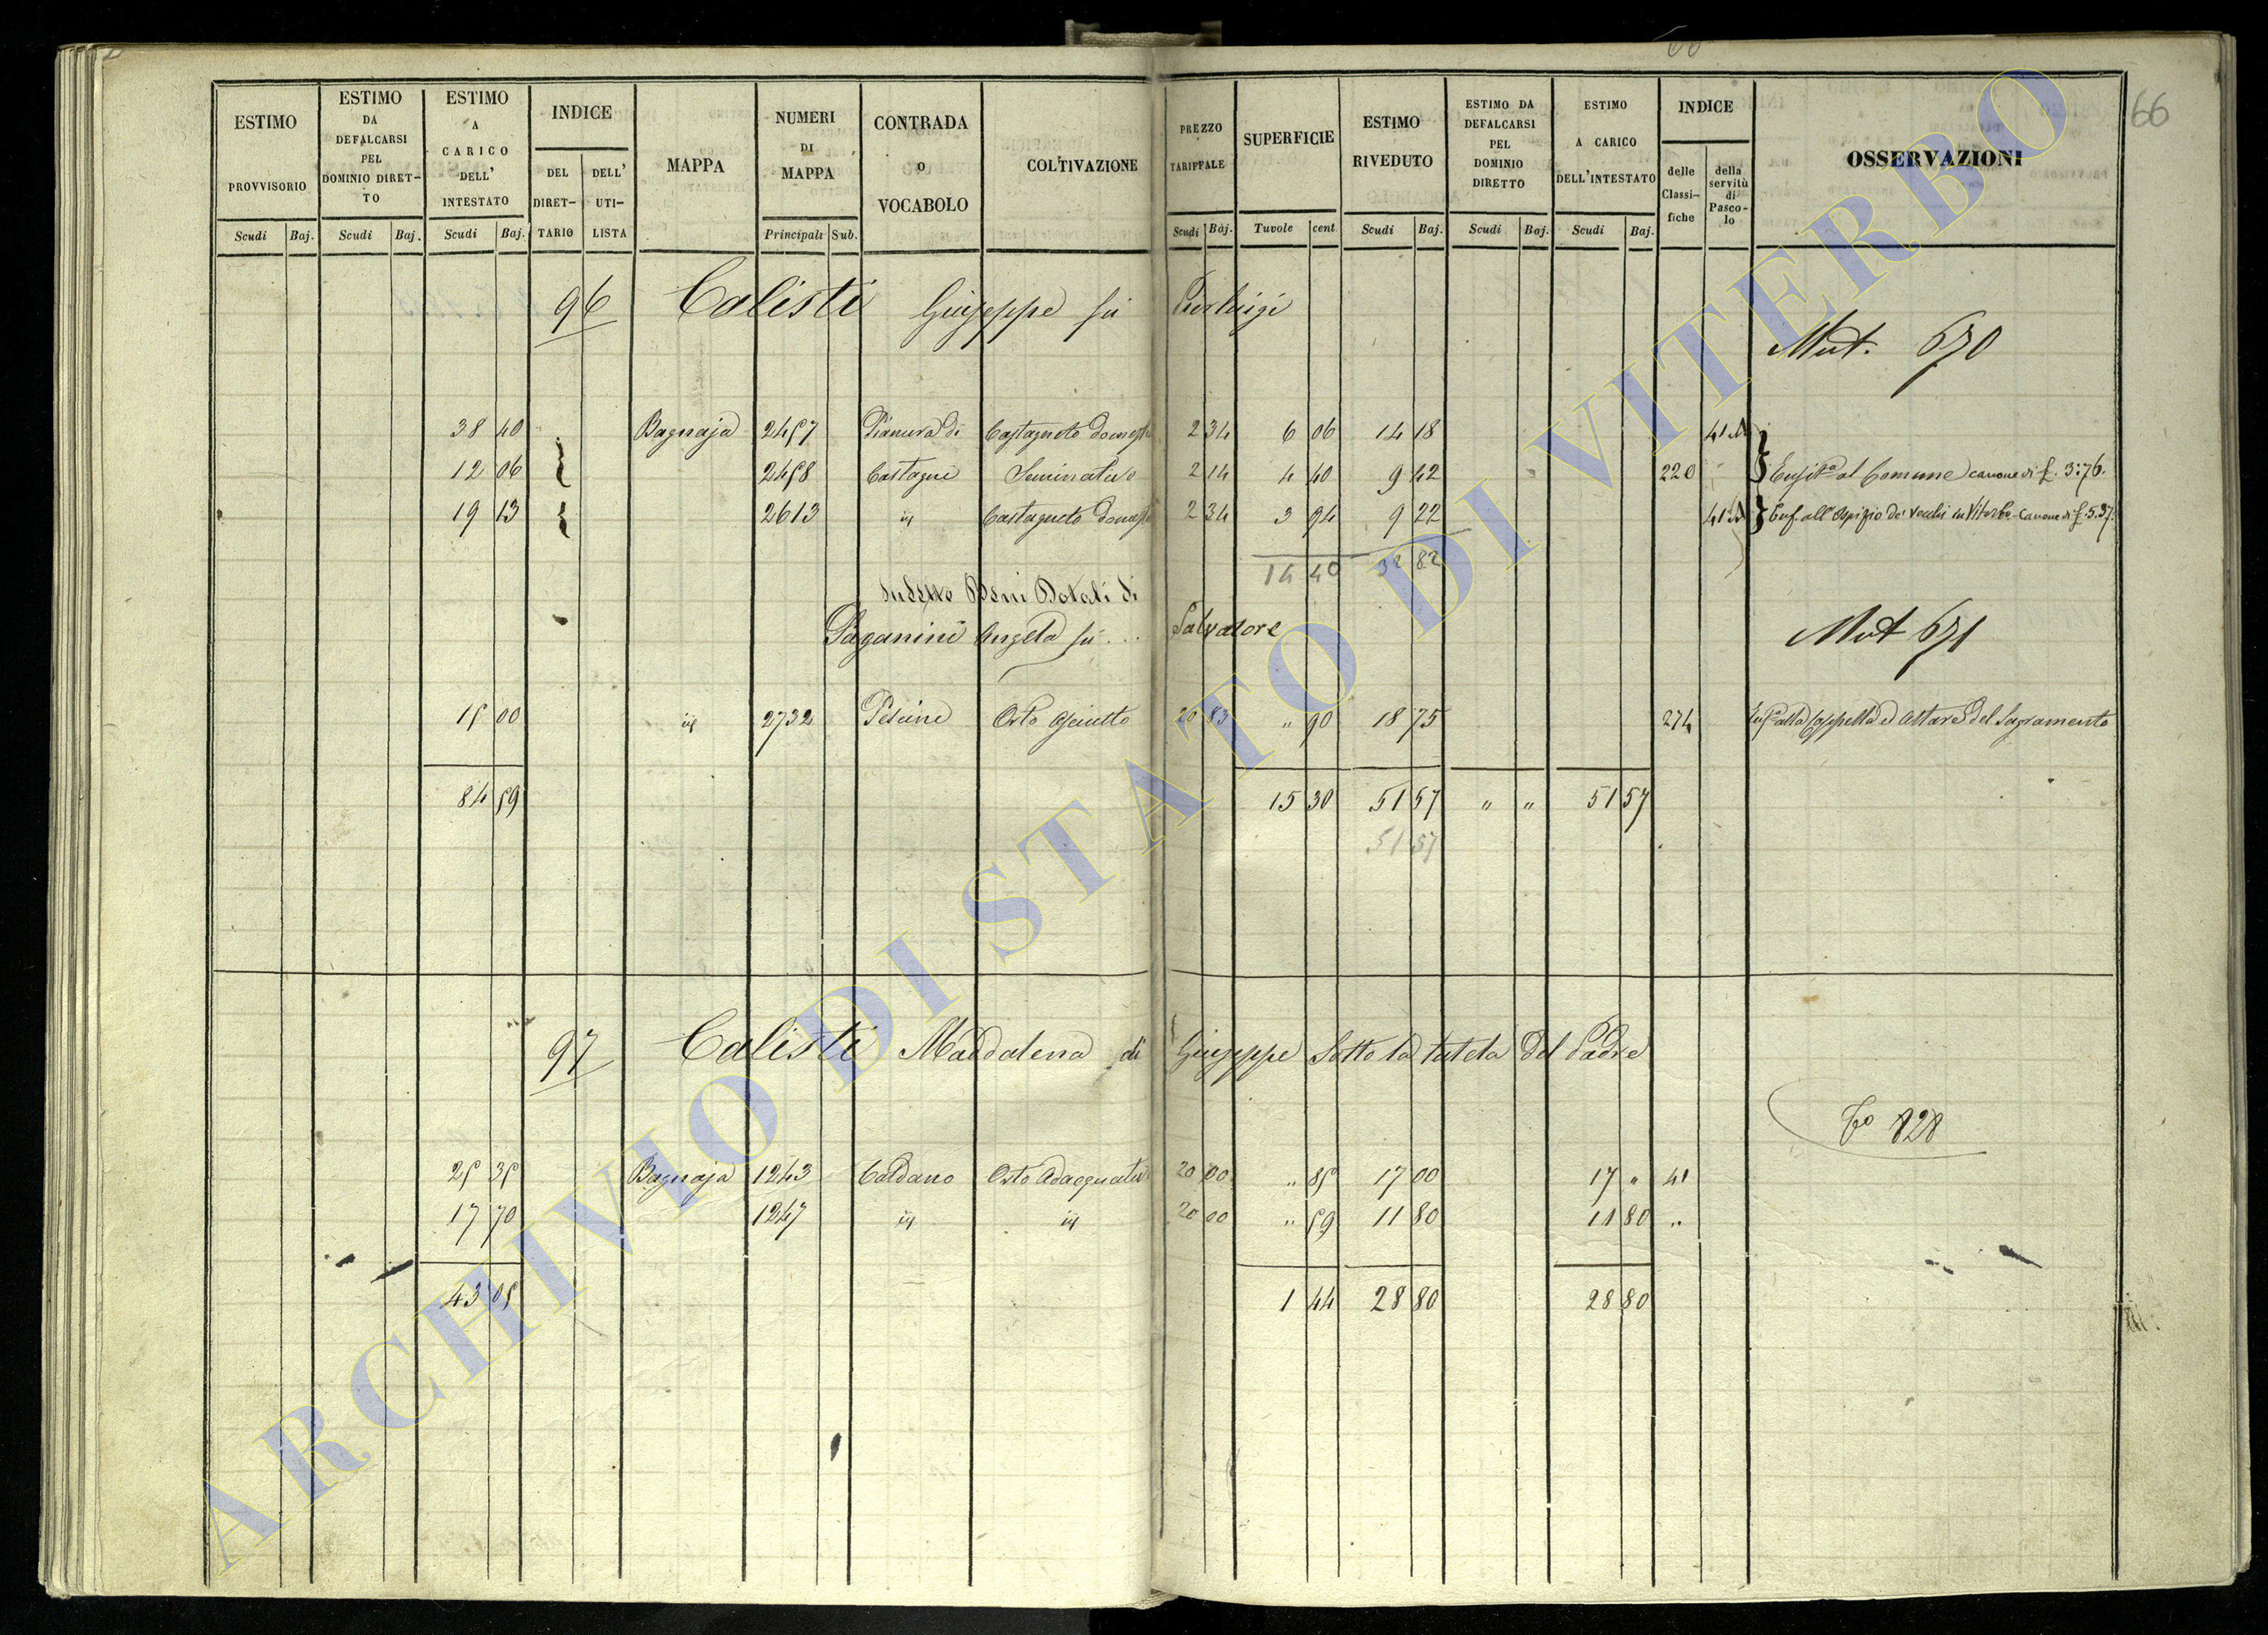 66
ESTIMO PROVVISORIO
ESTIMO DA DEFALCARSI PEL DOMINIO DIRET-TO
ESTIMO A CARICO DELL' INTESTATO
INDICE
DEL DIRET-TARIO
DELL' UTI-LISTA
MAPPA
NUMERI DI MAPPA
CONTRADA O VOCABOLO
COLTIVAZIONE
PREZZO TARIFFALE
SUPERFICIE
ESTIMO RIVEDUTO
ESTIMO DA DEFALCARSI PEL DOMINIO DIRETTO
ESTIMO A CARICO DELL'INTESTATO
INDICE
delle Classi-fiche
della servitù di Pasco-lo
OSSERVAZIONI
Scudi Baj. Scudi Baj. Scudi Baj. Principali Sub. Scudi Baj. Tavole cent. Scudi Baj. Scudi Baj. Scudi Baj.
96 Calisti Giuseppe fu Pierluigi
Mut. 670
38 40 Bagnaja 2457 Pianura di Castagneto domest 2 34 6 06 14 18 41 M
12 06 2458 Castagne Seminativo 2 14 4 40 9 42 220 Enfit. al Comune canone di £. 3:76.
19 13 2613 id Castagneto domest 2 34 3 94 9 22 41 M Enf. all'Ospizio dei Vecchi in Viterbo - Canone di £. 5.37.
14 40 32 82
Sudetto Beni Dotali di
Paganini Angela fu ... Salvatore
Mut 671
15 00 id 2732 Piscine Orto asciutto 20 83 " 90 18 75 274 Enf. alla Cappella ed Altare del Sagramento
84 59 15 30 51 57 " " 51 57
51 57
97 Calisti Maddalena di Giuseppe Sotto la tutela del Padre
Co 828
25 35 Bagnaja 1243 Caldano Orto Adacquativo 20 00 " 85 17 00 17 " 41
17 70 1247 id id 20 00 " 59 11 80 11 80 "
43 05 1 44 28 80 28 80
ARCHIVIO DI STATO DI VITERBO